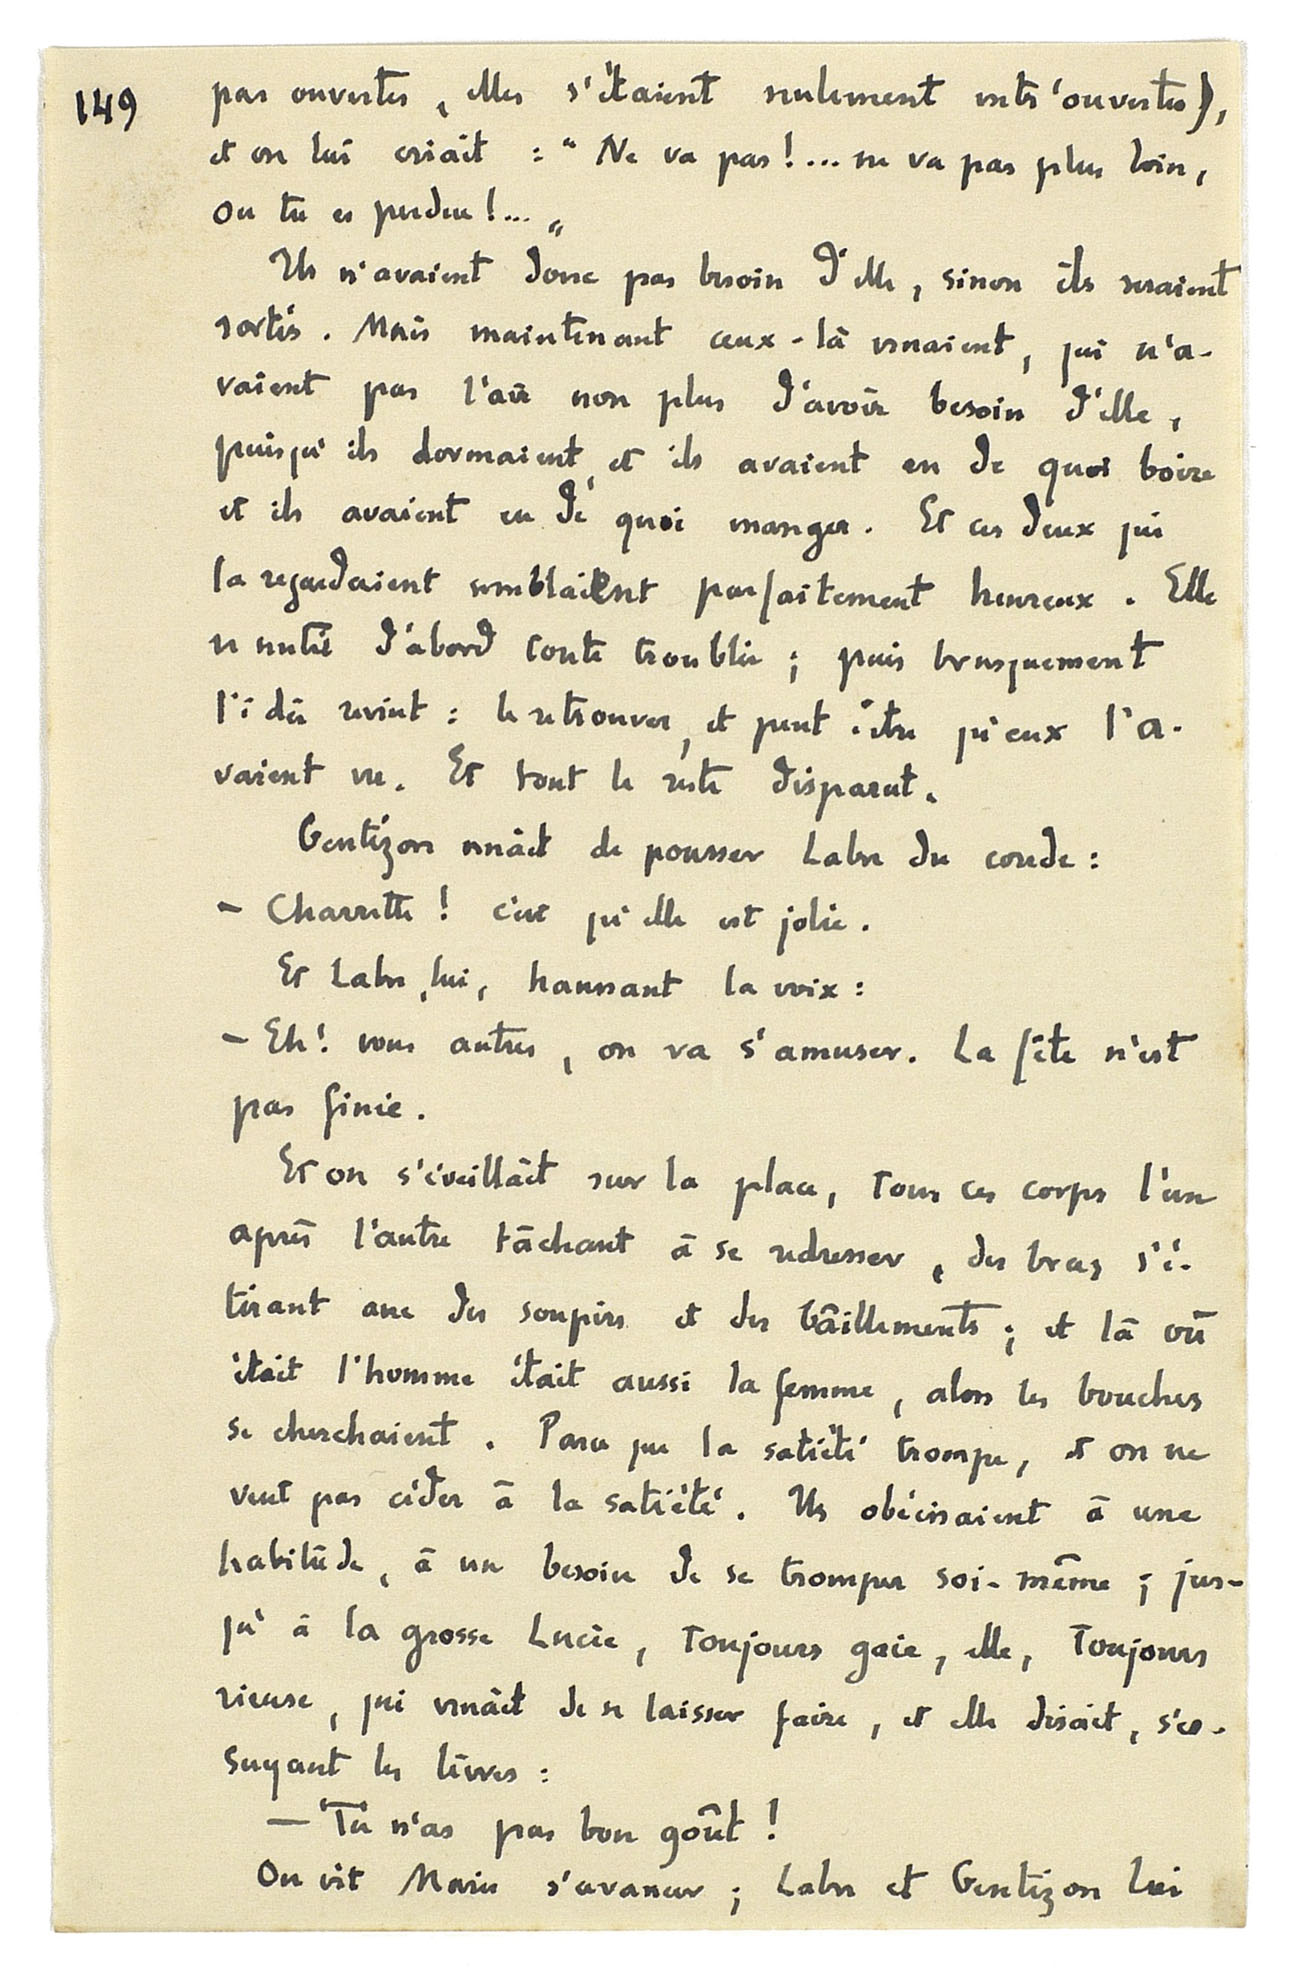 149
pas ouvertes, elles s'étaient seulement entr'ouvertes),
et on lui criait : " Ne va pas !... ne va pas plus loin,
ou tu es perdue !... „
Ils n'avaient donc pas besoin d'elle, sinon ils seraient
sortis. Mais maintenant ceux-là venaient, qui n'a-
vaient pas l'air non plus d'avoir besoin d'elle,
puisqu'ils dormaient, et ils avaient eu de quoi boire
et ils avaient eu de quoi manger. Et ces deux qui
la regardaient semblaient parfaitement heureux. Elle
se sentit d'abord toute troublée ; puis brusquement
l'idée revint : le retrouver, et peut être qu'eux l'a-
vaient vu. Et tout le reste disparut.
Gentizon venait de pousser Labre du coude :
– Charrette ! c'est qu'elle est jolie.
Et Labre, lui, haussant la voix :
– Eh ! vous autres, on va s'amuser. La fête n'est
pas finie.
Et on s'éveillait sur la place, tous ces corps l'un
après l'autre tâchant à se redresser, des bras s'é-
tirant avec des soupirs et des bâillements ; et là où
était l'homme était aussi la femme, alors les bouches
se cherchaient. Parce que la satiété trompe, et on ne
veut pas céder à la satiété. Ils obéissaient à une
habitude, à un besoin de se tromper soi-même ; jus-
qu'à la grosse Lucie, toujours gaie, elle, toujours
rieuse, qui venait de se laisser faire, et elle disait, s'es-
suyant les lèvres :
– Tu n'as pas bon goût !
On vit Marie s'avancer ; Labre et Gentizon lui